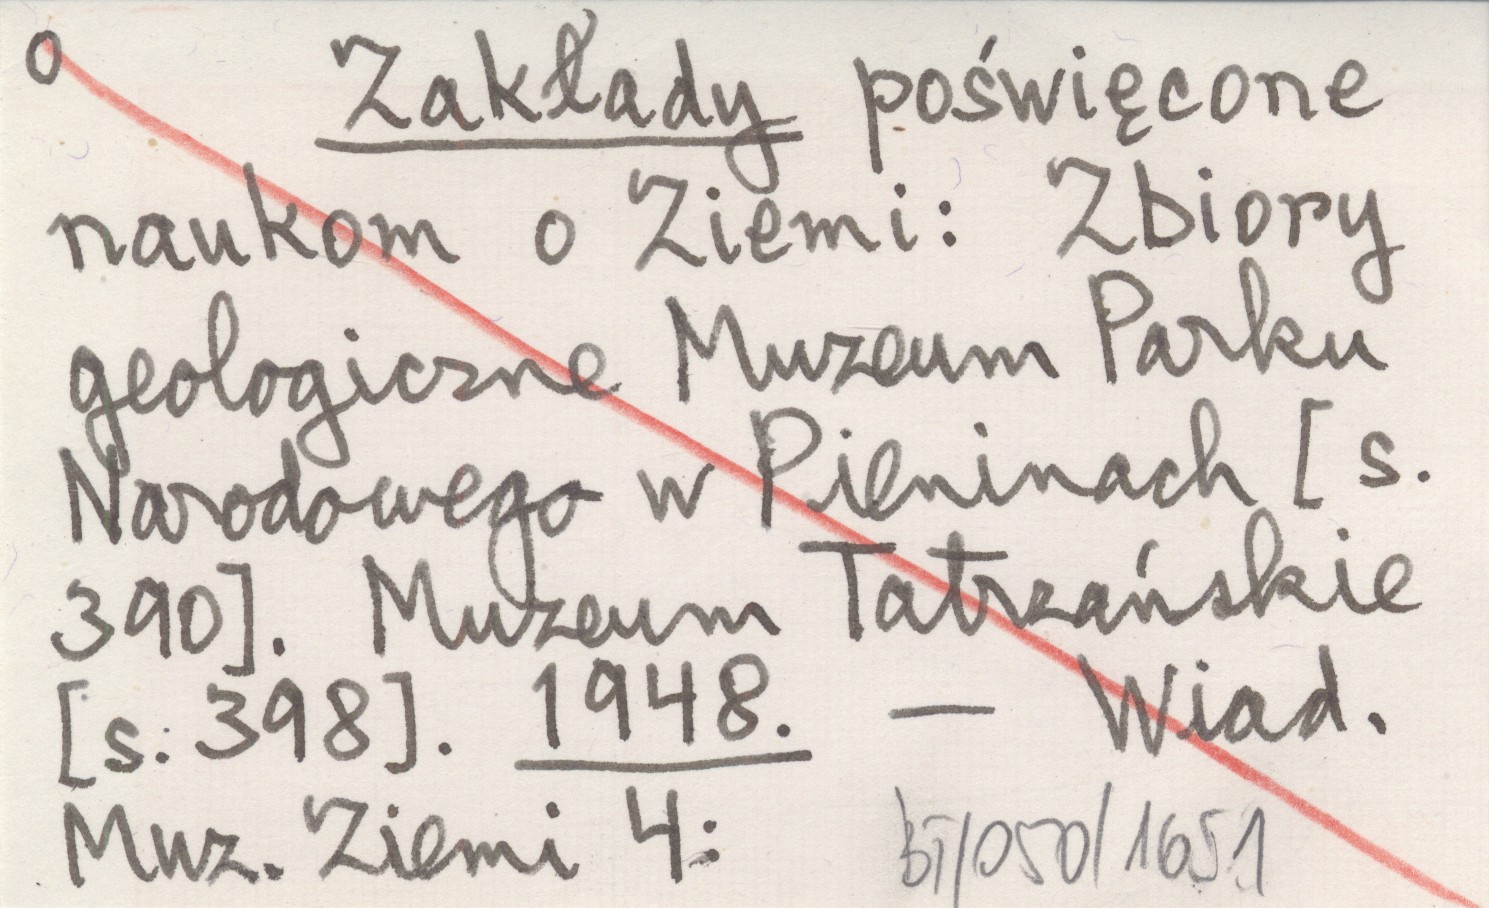 o Zakłady poświęcone
naukom o Ziemi: Zbiory
geologiczne Muzeum Parku
Narodowego w Pieninach [s.
390]. Muzeum Tatrzańskie
[s. 398]. 1948. — Wiad.
Muz. Ziemi 4: BT/050/1651